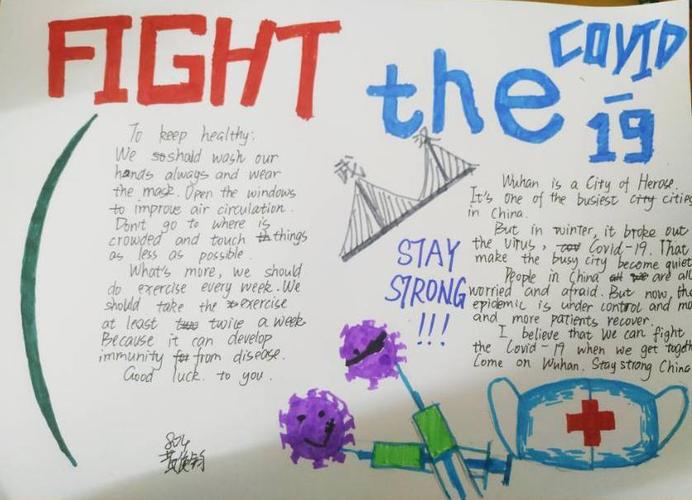 FIGHT
the
COVID
-
19
To keep healthy:
We should wash our
hands always and wear
the mask. Open the windows
to improve air circulation.
Don't go to where is
crowded and touch things
as less as possible.
What's more, we should
do exercise every week. We
should take the exercise
at least twice a week
Because it can develop
immunity from disease.
Good luck to you.
武
汉
STAY
STRONG
!!!
Wuhan is a City of Herose.
It's one of the busiest city cities
in China.
But in winter, it broke out
the virus, Covid-19. That
make the busy city become quiet
People in China are all
worried and afraid. But now, the
epidemic is under control and mo
and more patients recover.
I believe that we can fight
the Covid-19 when we get togeth
Come on Wuhan. Stay strong China
804